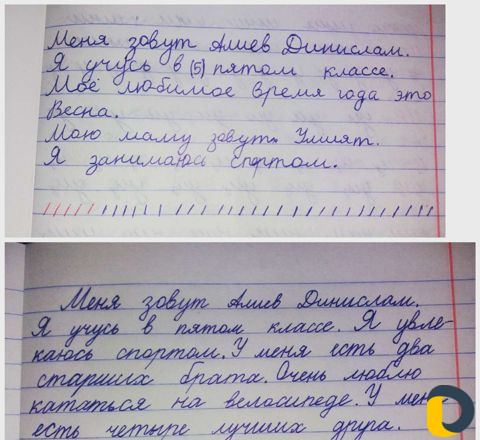 Меня зовут Алиев Динислам.
Я учусь в (5) пятом классе.
Моё любимое время года это
Весна.
Мою маму зовут Умият.
Я занимаюсь спортом.
Меня зовут Алиев Динислам.
Я учусь в пятом классе. Я увле-
каюсь спортом. У меня есть два
старших брата. Очень люблю
кататься на велосипеде. У меня
есть четыре лучших друга.